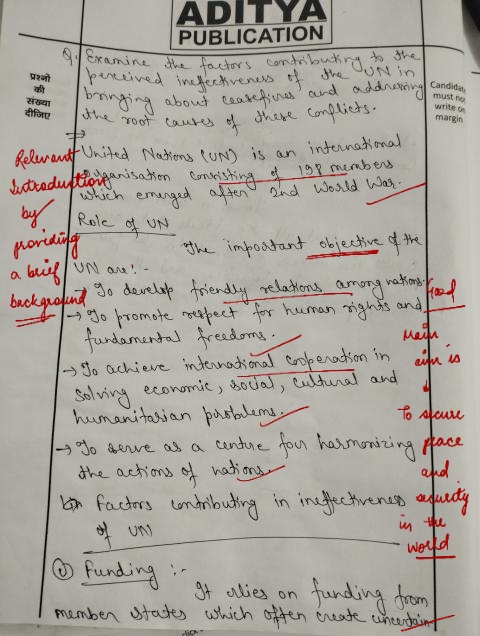 ADITYA
PUBLICATION
प्रश्नो
की
संख्या
दीजिए
Candidate
must not
write on
margin
Q. Examine the factors contributing to the
perceived ineffectiveness of the UN in
bringing about ceasefires and addressing
the root causes of these conflicts.
⇒
United Nations (UN) is an international
organisation consisting of 198 members
which emerged after 2nd World War.
Relevant
Introduction
by
providing
a brief
background
Role of UN
The important objective of the
UN are:-
→ To develop friendly relations among nations.
→ To promote respect for human rights and
fundamental freedoms.
→ To achieve international cooperation in
solving economic, social, cultural and
humanitarian problems.
→ To serve as a centre for harmonizing
the actions of nations.
Good
Main
aim is
↓
To secure
peace
and
security
in the
world
Factors contributing in ineffectiveness
of UN
① Funding :-
It relies on funding from
member states which often create uncertain-